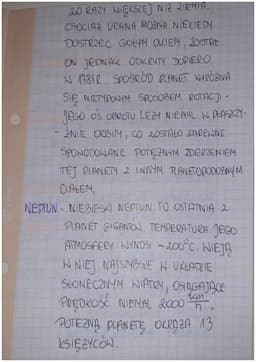 20 RAZY WIĘKSZEJ NIŻ ZIEMIA.
CHOCIAŻ URANA MOŻNA NIEKIEDY
DOSTRZEC GOŁYM OKIEM, ZOSTAŁ
ON JEDNAK ODKRYTY DOPIERO
W 1781R. SPOŚRÓD PLANET WYRÓŻNIA
SIĘ NIETYPOWYM SPOSOBEM ROTACJI -
JEGO OŚ OBROTU LEŻY NIEMAL W PŁASZCZY-
-ŹNIE ORBITY, CO ZOSTAŁO ZAPEWNE
SPOWODOWANE POTĘŻNYM ZDERZENIEM
TEJ PLANETY Z INNYM PLANETOPODOBNYM
CIAŁEM.
NEPTUN - NIEBIESKI NEPTUN TO OSTATNIA Z
PLANET GIGANTÓW. TEMPERATURA JEGO
ATMOSFERY WYNOSI -200°C. WIEJĄ
W NIEJ NAJSZYBSZE W UKŁADZIE
SŁONECZNYM WIATRY, OSIĄGAJĄCE
PRĘDKOŚĆ NIEMAL 2000 km/h.
POTĘŻNĄ PLANETĘ OKRĄŻA 13
KSIĘŻYCÓW.